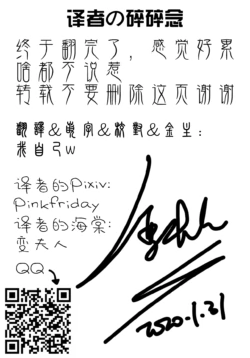 译者の碎碎念
终于翻完了，感觉好累
啥都不说惹
转载不要删除这页谢谢
翻譯&嵌字&校對&全主：
我自己w
译者的Pixiv:
Pinkfriday
译者的海棠:
变夫人
QQ
2020.1.31